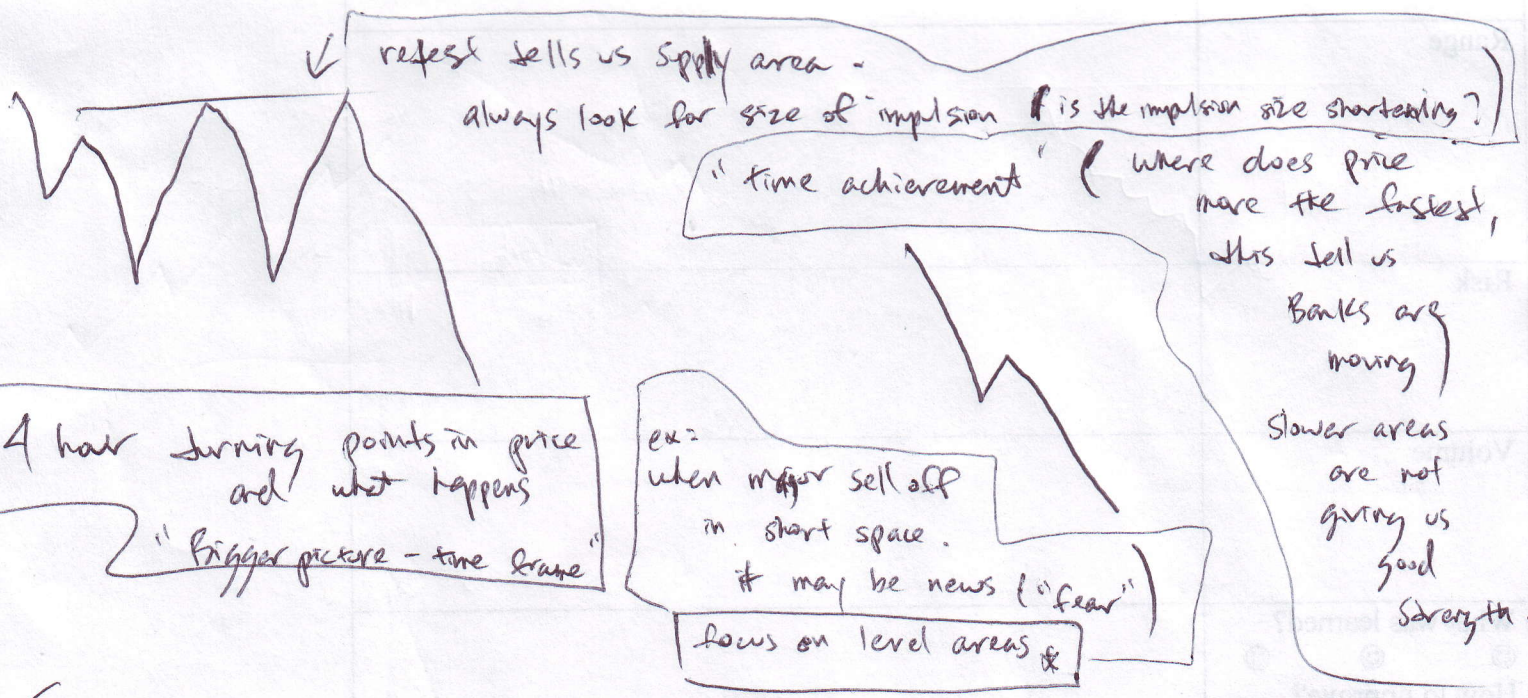 retest tells us supply area.
always look for size of impulsion (is the impulsion size shortending?)
"time achievement" (where does price
move the fastest,
this tell us
Banks are
moving)
Slower areas
are not
giving us
good
strength
4 hour turning points in price
and what happens
"Bigger picture - time frame"
ex:
when major sell off
in short space.
it may be news ("fear")
focus on level areas *
Range
Risk
Volume
What was learned?
How to improve?